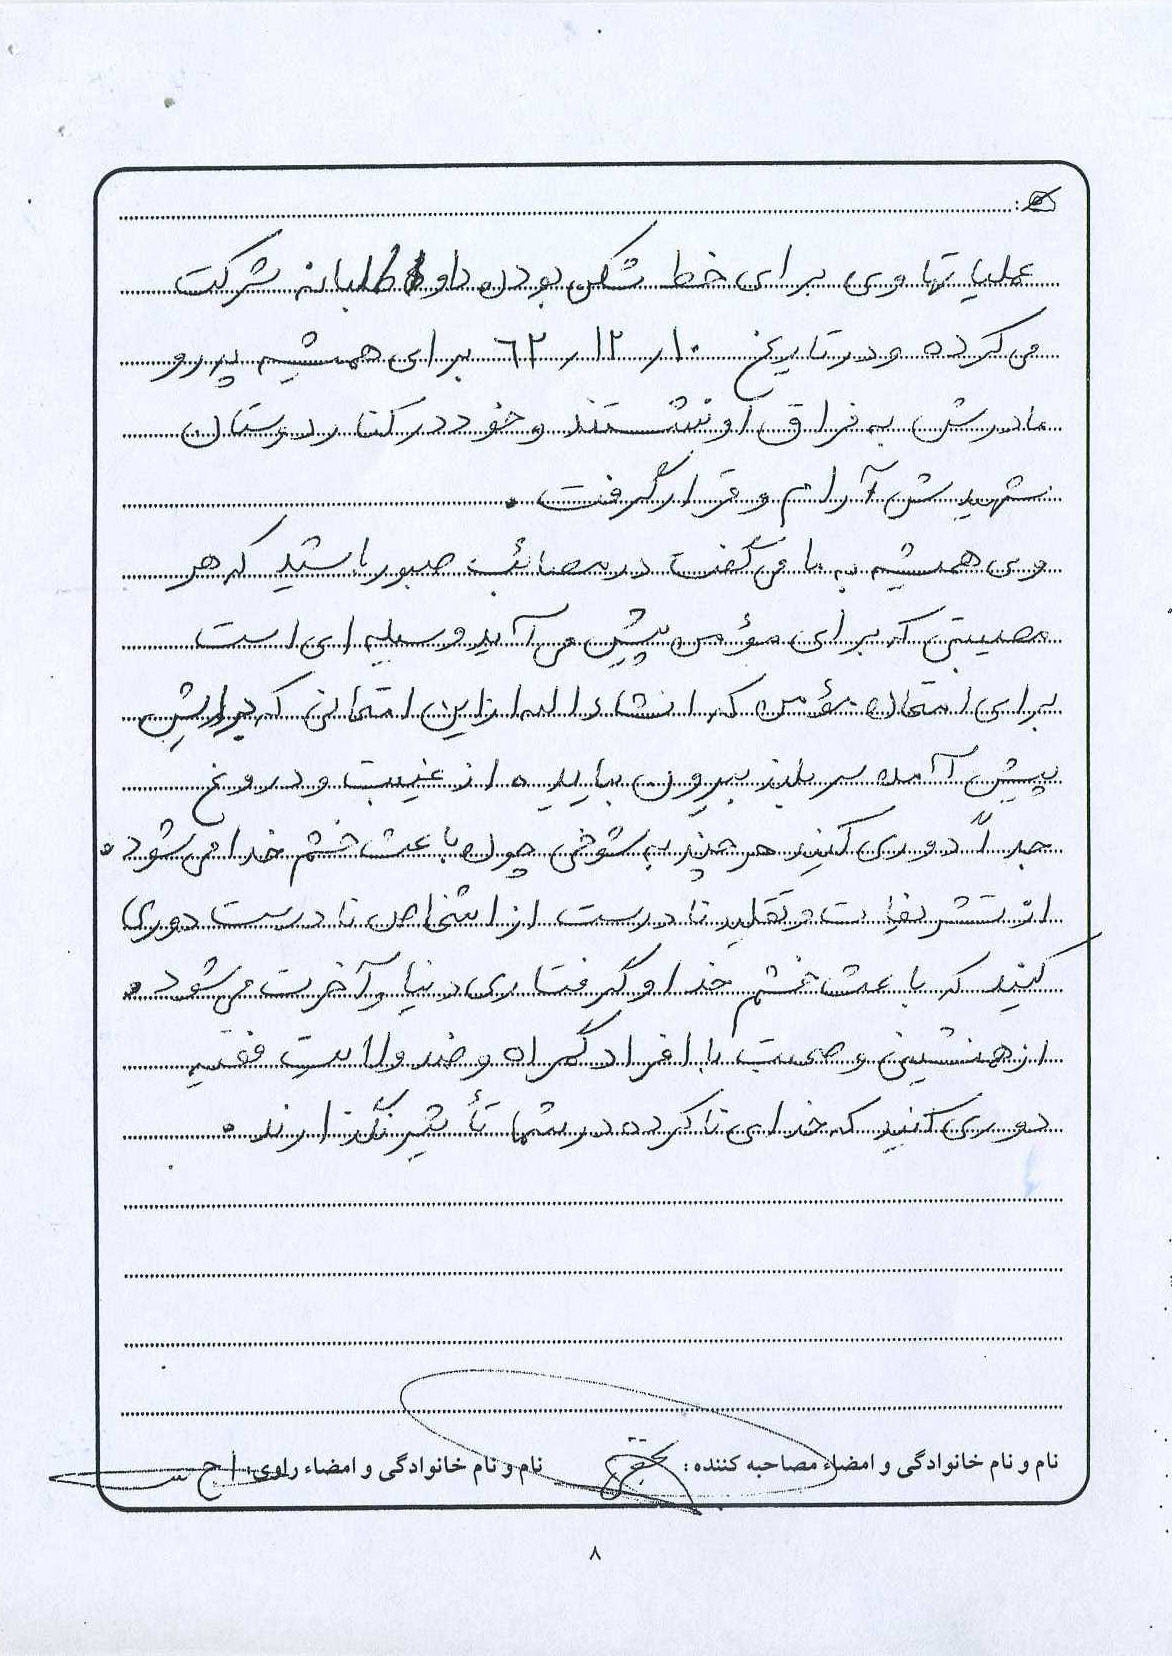 عملیاتها وی برای خط شکن بودن داوطلبانه شرکت
می کرده و در تاریخ ۱۰ر۱۲ر۶۲ برای همیشه پدر و
مادرش به فراق او نشستند و خود در کنار دوستان
شهیدش آرام و قرار گرفت.
وی همیشه به ما می گفت در مصائب صبور باشید که هر
مصیبتی که برای مؤمن پیش می آید وسیله ای است
برای امتحان مؤمن که انشاءالله از این امتحانی که برایش
پیش آمده سر بلند بیرون بیاید. از غیبت و دروغ
جداً دوری کنید هر چند به شوخی چون باعث خشم خدا می شود.
از تشریفات و تقلید نادرست از اشخاص نادرست دوری
کنید که باعث خشم خدا و گرفتاری دنیا و آخرت می شود.
از همنشینی و صحبت با افراد گمراه و ضد ولایت فقیه
دوری کنید که خدای ناکرده در شما تأثیر نگذارند.
نام و نام خانوادگی و امضاء مصاحبه کننده: نام و نام خانوادگی و امضاء راوی:
۸